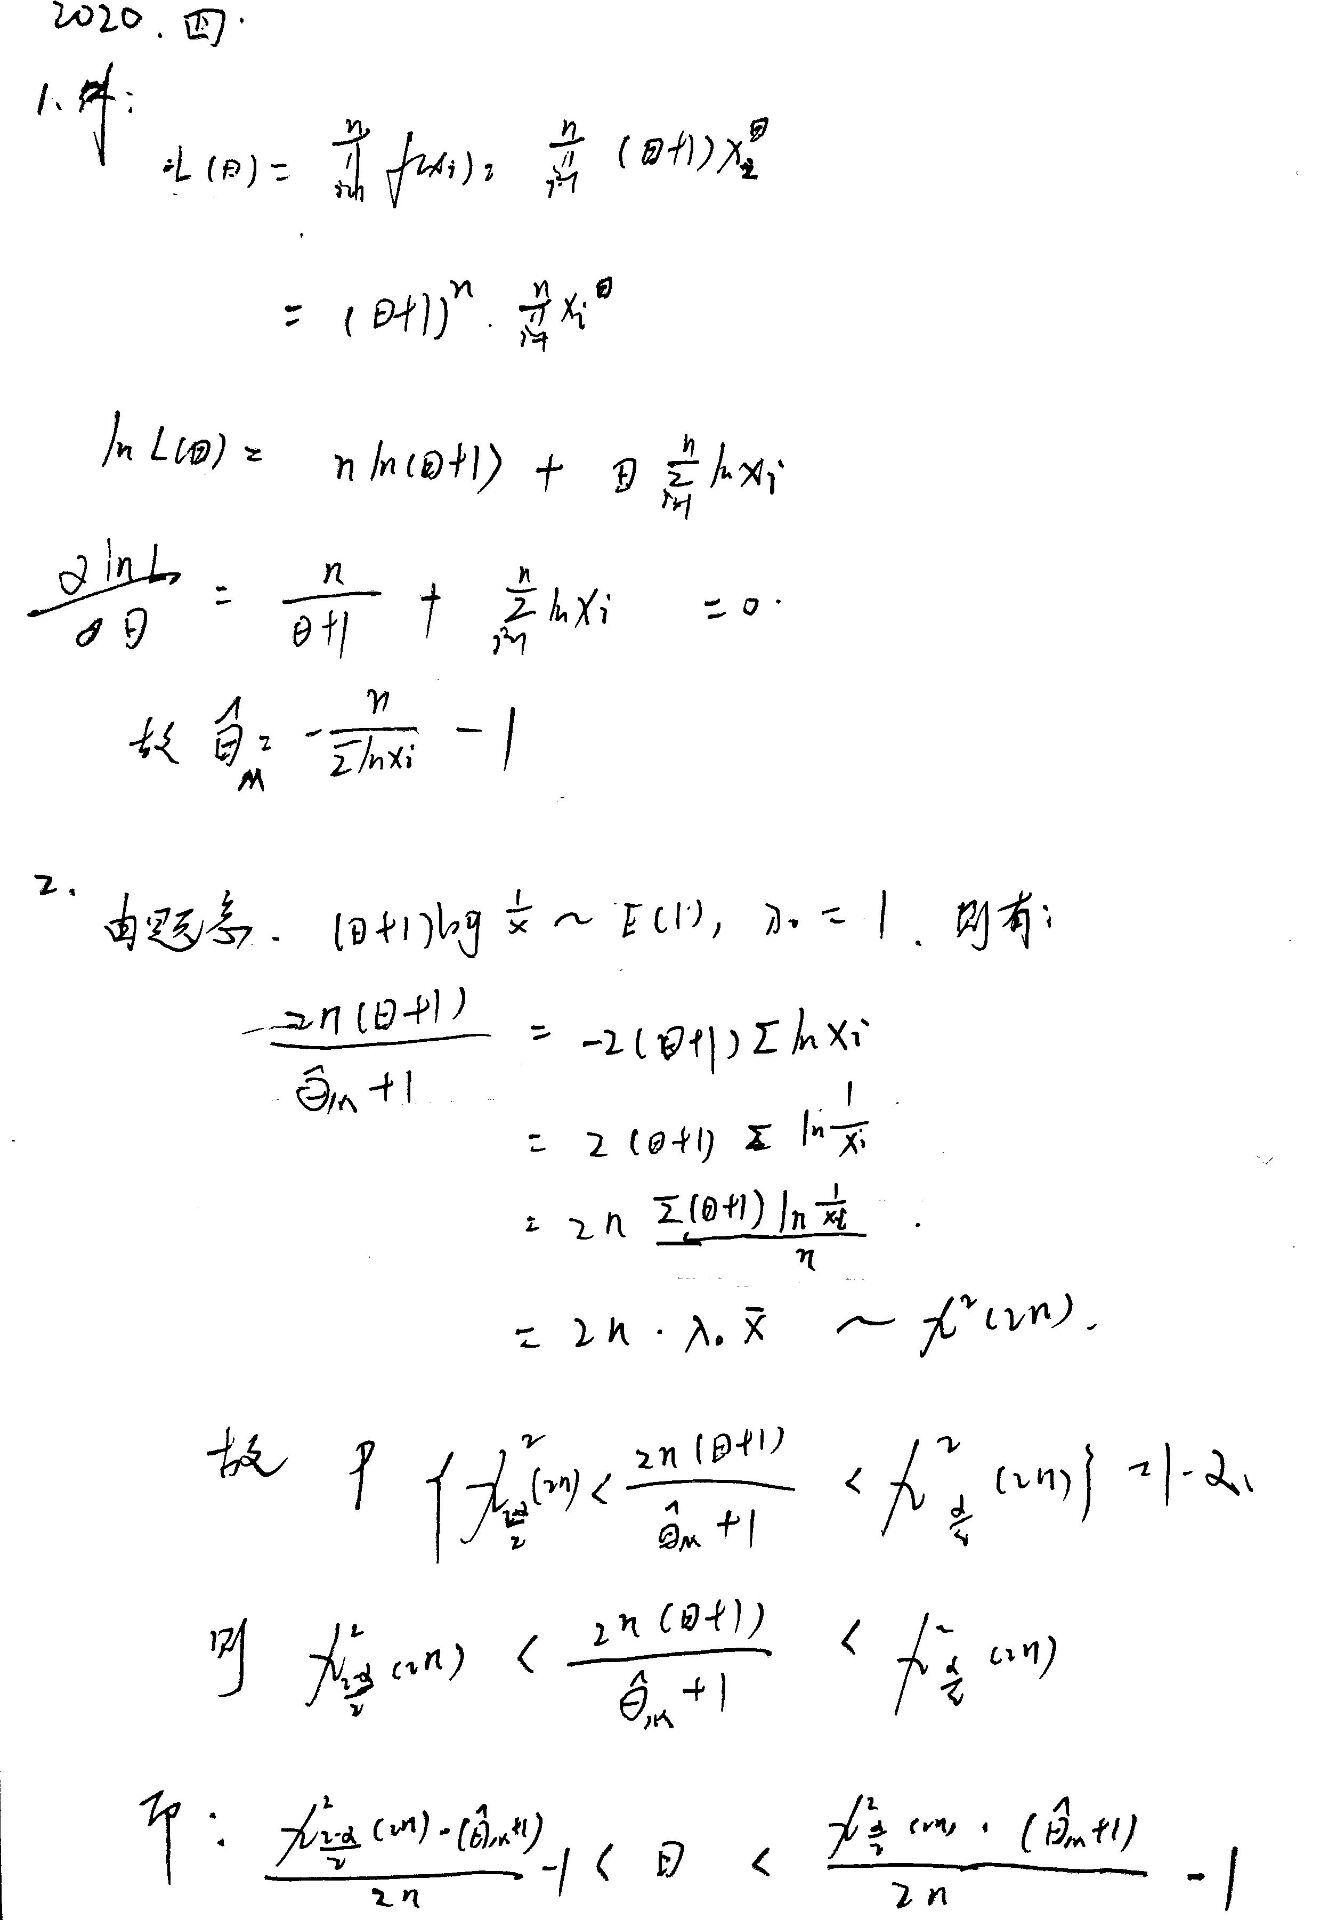 2020.四.
1、解:
L(θ) = ∏_{i=1}^{n} f(xi) = ∏_{i=1}^{n} (θ+1)x_i^θ
= (θ+1)^n · ∏_{i=1}^{n} x_i^θ
ln L(θ) = n ln(θ+1) + θ ∑_{i=1}^{n} ln xi
∂ln L/∂θ = n/(θ+1) + ∑_{i=1}^{n} ln xi = 0.
故 θ̂_M = -n/(∑ln xi) - 1
2. 由题意. (θ+1)log 1/x ~ E(1), λ₀ = 1. 则有:
2n(θ+1)/(θ̂_M+1) = -2(θ+1)∑ln xi
= 2(θ+1)∑ ln 1/xi
= 2n ∑(θ+1) ln 1/xi / n .
= 2n · λ₀ x̄ ~ χ²(2n).
故 P{χ²_{(2-α)/2}(2n) < 2n(θ+1)/(θ̂_M+1) < χ²_{α/2}(2n)} = 1-α、
则 χ²_{(2-α)/2}(2n) < 2n(θ+1)/(θ̂_M+1) < χ²_{α/2}(2n)
即: χ²_{(2-α)/2}(2n)·(θ̂_M+1)/2n -1 < θ < χ²_{α/2}(2n)·(θ̂_M+1)/2n -1